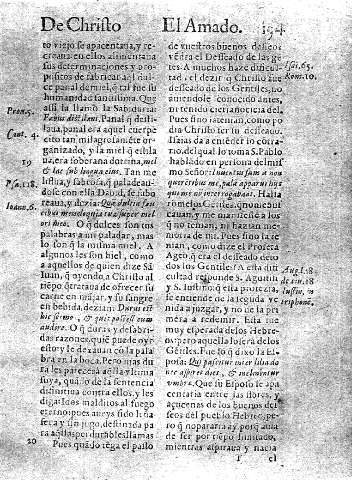 De Christo El Amado. 154
to viejo se apacentaria, y re
creaua en ellos alimentaria
sus determinaciones y pro
positos de fabricar aql dul
ce panal de miel, q tal fue su
humanidad santissima. Que
assi la llamò la Sabiduria:
Fauus distillans. Panal q desti
laua, panal era aquel cuerpe
cito tan milagrosamẽte or
ganizado, y la miel q enbl
ua, era soberana dotrina, mel
& lac sub lingua eius. Tan me
liflua, y sabrosa, q paladeau
dose con ella Dauid, se sabo
reaua, y dezia: Quã dulcia fau
cibus meis eloquia tua super mel
ori meo. O q dulces son tus
palabras a mi paladar, mas
lo son q la misma miel. A
algunos les son hiel, como
a aquellos de quien dize San
Iuan, q oyendo a Christo al
tiẽpo q trataua de ofrecer su
carne en mãjar, y su sangre
en bebida, dezian: Durus est
hic sermo, & quis potest eum
audire. O q duras y desabri
das razones, quiẽ puede oyr
esto y le dezian cõ la pala
bra en la boca. Pero mas du
ra les parecerà aqlla vltima
suya, quãdo de la sentencia
distinitiua contra ellos, y les
diga: Idos malditos al fuego
eterno: pues aueys sido leña
seca y sin jugo, destinada pa
ra aqllas perdurables llamas.
Pues quãdo tẽga el passo
Prou. 5.
Cant. 4.
19
Ps. 118.
Ioann. 6.
20
de vuestros buenos desseos
vẽdra el Desseado de las gẽ
tes. A muchos haze dificul
tad, el dezir q Christo fue
desseado de los Gentiles, no
auiendole conocido antes,
ni teniendo cierta noticia del.
Pues sino le teniam, como po
dia Christo ser su desseado.
Isaias da a entẽder lo contra
rio, del qual lo toma S. Pablo
hablado en persona del mis
mo Señor: Inuentus sum a non
quærentibus me, palã apparui his qui
qui me non interrogabant. Halla
ronme los Gentiles, q no me bus
cauan, y me manifestè a los
q no tenian, ni hazian me
moria de mi. Pues sino la te
nian, como dize el Profeta
Ageo, q era el desseado de to
dos los Gentiles? A esta difi
cultad respõde S. Agustin
y S. Iustino, q esta profezia,
se entiende de la segũda ve
nida a juzgar, y no de la pri
mera a redemir. Esta tue
muy esperada de los Hebre
os: pero aquella lo serà de los
Gẽtiles. Fue lo q dixo la Es
posa: Qui pascitur inter lilia do
nec aspiret dies, & inclinentur
vmbræ. Que su Esposo se apa
centaria entre las flores, y
açucenas de los buenos des
seos del pueblo Hebreo, pe
ro q no pararia ay, porq auia
de ser por tiẽpo limitado,
mientras aspiraua y nacia
Isai. 65.
Rom. 10.
Aug. l. 18
de ciu. 28
Iustin. in
triphonẽ.
el